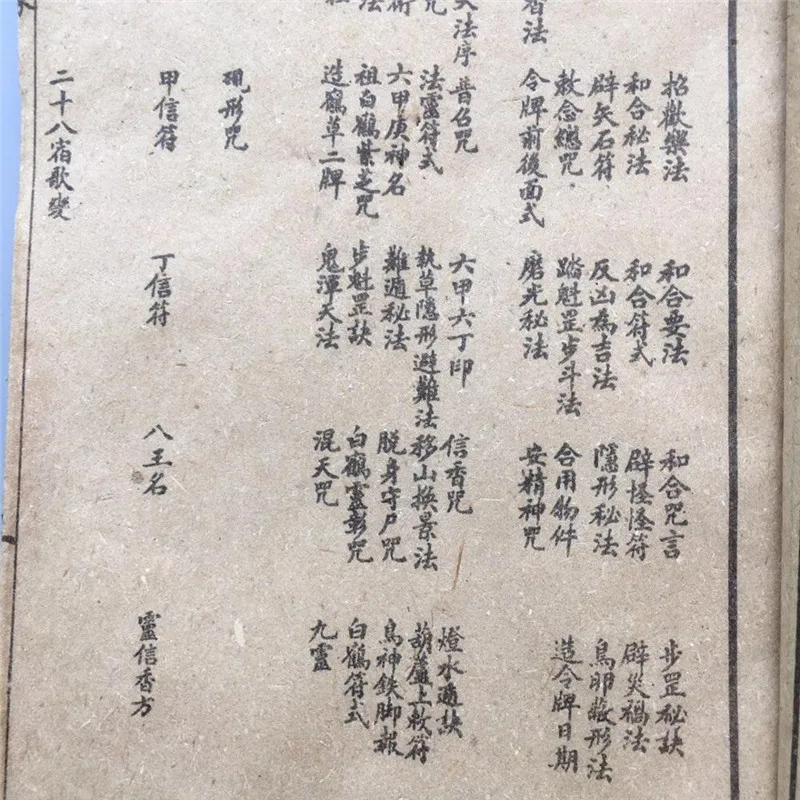 招歡樂法 和合要法 和合咒言 步罡秘訣
和合秘法 和合符式 辟怪怪符 辟災禍法
辟矢石符 反凶為吉法 隱形秘法 鳥卵形法
敕念總咒 踏魁罡步斗法 合用物件 造令牌日期
法 令牌前後面式 磨光秘法 安精神咒
法序 普召咒 六甲六丁印 信香咒 燈水遁訣
咒 法靈符式 執草隱形避難法 移山換景法 葫蘆上敕符
術 六甲庚神名 難遁秘法 脫身守尸咒 鳥神鉄脚報
法 祖白鶴紫芝咒 步魁罡訣 白鶴靈彰咒 白鶴符式
造鶴草二牌 鬼渾天法 混天咒 九靈
現形咒
甲信符 丁信符 八王名 靈信香方
二十八宿歌變